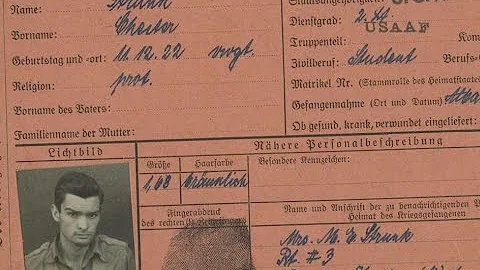 Name: Strunk
Vorname: Chester
Geburtstag und -ort: 11.12.22
Religion: prot.
Vorname des Vaters:
Familienname der Mutter:
Dienstgrad: 2. Lt.
USAAF
Truppenteil:
Zivilberuf: Student Berufs-G
Matrikel Nr. (Stammrolle des Heimatstaates
Gefangennahme (Ort und Datum)
Ob gesund, krank, verwundet eingeliefert:
Lichtbild
Nähere Personalbeschreibung
Größe
Haarfarbe
Besondere Kennzeichen:
1,68
bräunlich
Fingerabdruck
des rechten
Name und Anschrift der zu benachrichtigenden P
Heimat des Kriegsgefangenen
Mrs. M. E. Strunk
Rt. # 3